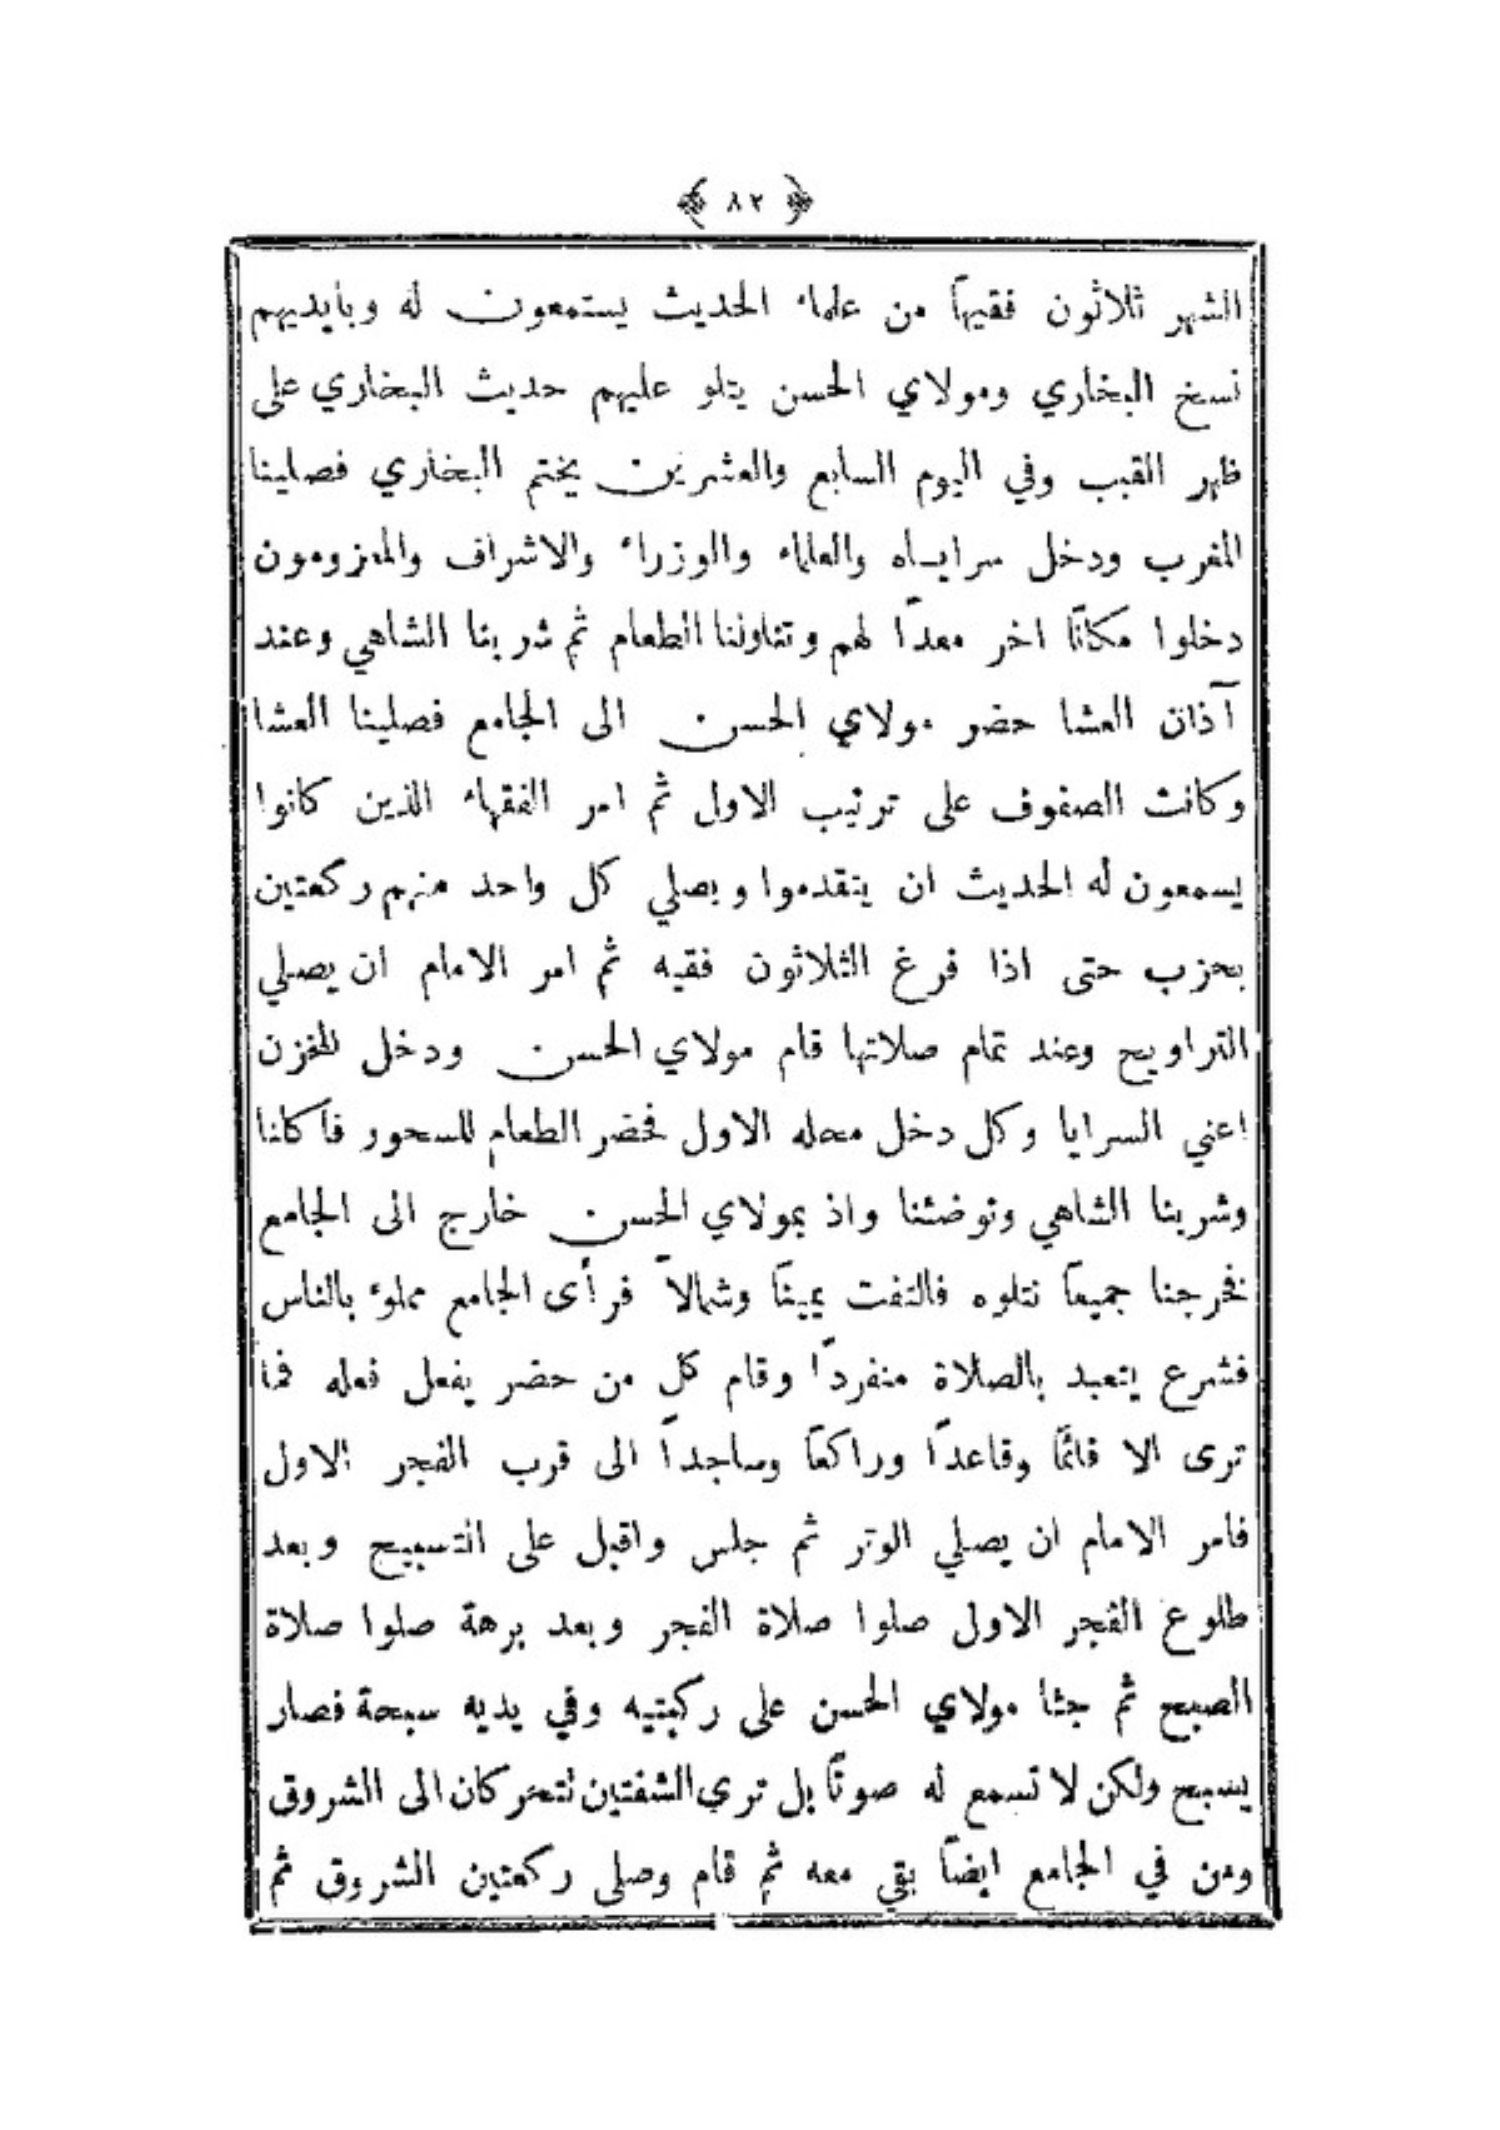 ﴿ ٨٢ ﴾
الشهر ثلاثون فقيهاً من علماء الحديث يستمعون له وبايديهم
نسخ البخاري ومولاي الحسن يتلو عليهم حديث البخاري على
ظهر القبب وفي اليوم السابع والعشرين يختم البخاري فصلينا
المغرب ودخل سراياه والعلماء والوزراء والاشراف والمعزومون
دخلوا مكاناً اخر معداً لهم وتناولنا الطعام ثم شربنا الشاهي وعند
آذان العشا حضر مولاي الحسن الى الجامع فصلينا العشا
وكانت الصفوف على ترتيب الاول ثم امر الفقهاء الذين كانوا
يسمعون له الحديث ان يتقدموا ويصلي كل واحد منهم ركعتين
بحزب حتى اذا فرغ الثلاثون فقيه ثم امر الامام ان يصلي
التراويح وعند تمام صلاتها قام مولاي الحسن ودخل للمخزن
اعني السرايا وكل دخل محله الاول فحضر الطعام للسحور فاكلنا
وشربنا الشاهي وتوضئنا واذ بمولاي الحسن خارج الى الجامع
فخرجنا جميعاً نتلوه فالتفت يميناً وشمالاً فرأى الجامع مملوء بالناس
فشرع يتعبد بالصلاة منفرداً وقام كل من حضر يفعل فعله فما
ترى الا قائماً وقاعداً وراكعاً وساجداً الى قرب الفجر الاول
فامر الامام ان يصلي الوتر ثم جلس واقبل على التسبيح وبعد
طلوع الفجر الاول صلوا صلاة الفجر وبعد برهة صلوا صلاة
الصبح ثم جثا مولاي الحسن على ركبتيه وفي يديه سبحة فصار
يسبح ولكن لا تسمع له صوتاً بل ترى الشفتين تتحركان الى الشروق
ومن في الجامع ايضاً بقي معه ثم قام وصلى ركعتين الشروق ثم